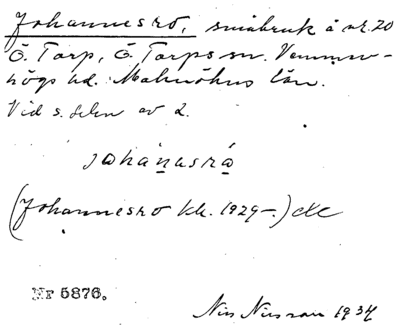 Johannesro, småbruk å nr. 20
Ö. Tarp, Ö. Tarps sn. Vemmen-
högs hd. Malmöhus län.
Vid s. delen av 2.
johánasrá
(Johannesro kk. 1929–.)
Nr 5876.
Nils Nilsson 1934